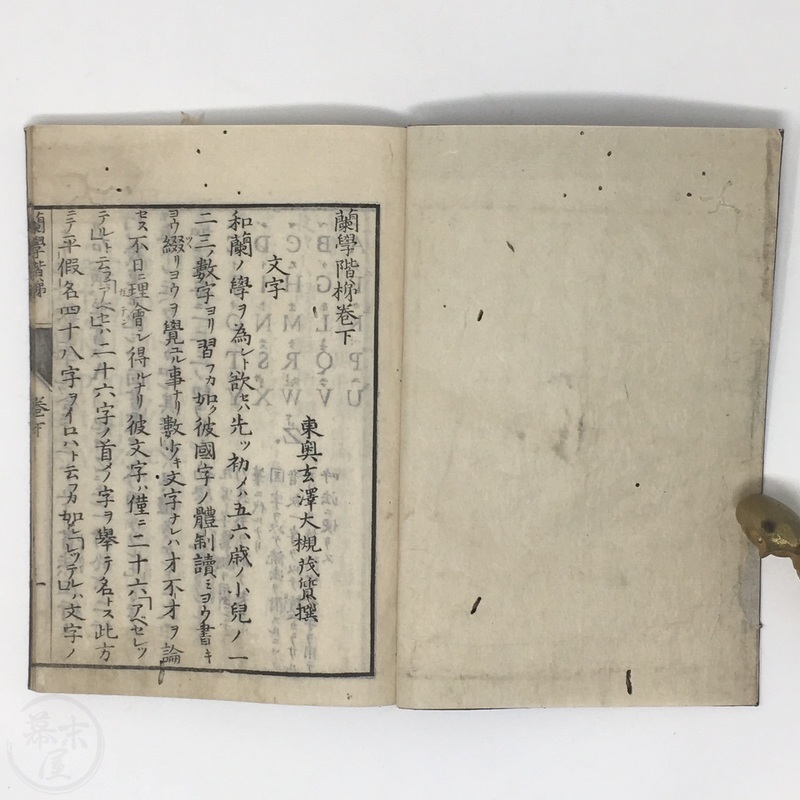 蘭學階梯卷下
東奥玄澤大槻茂質撰
文字
和蘭ノ學ヲ為ント欲セハ先ツ初メハ五六歳ノ小兒ノ一
二三ノ數字ヨリ習フカ如ク彼國字ノ體制讀ミヨウ書キ
ヨウ綴リヨウヲ覺ユル事ナリ數少キ文字ナレハ才不才ヲ論
セス不日ニ理會シ得ルナリ彼文字ハ僅ニ二十六「アベセレッ
テル」ト云フ「アベセ」ハ二十六字ノ首メノ字ヲ舉テ名トス此方
ニテ平假名四十八字ヲイロハト云フカ如シ「レッテル」ハ文字ノ
蘭學階梯 卷下 一
幕末屋